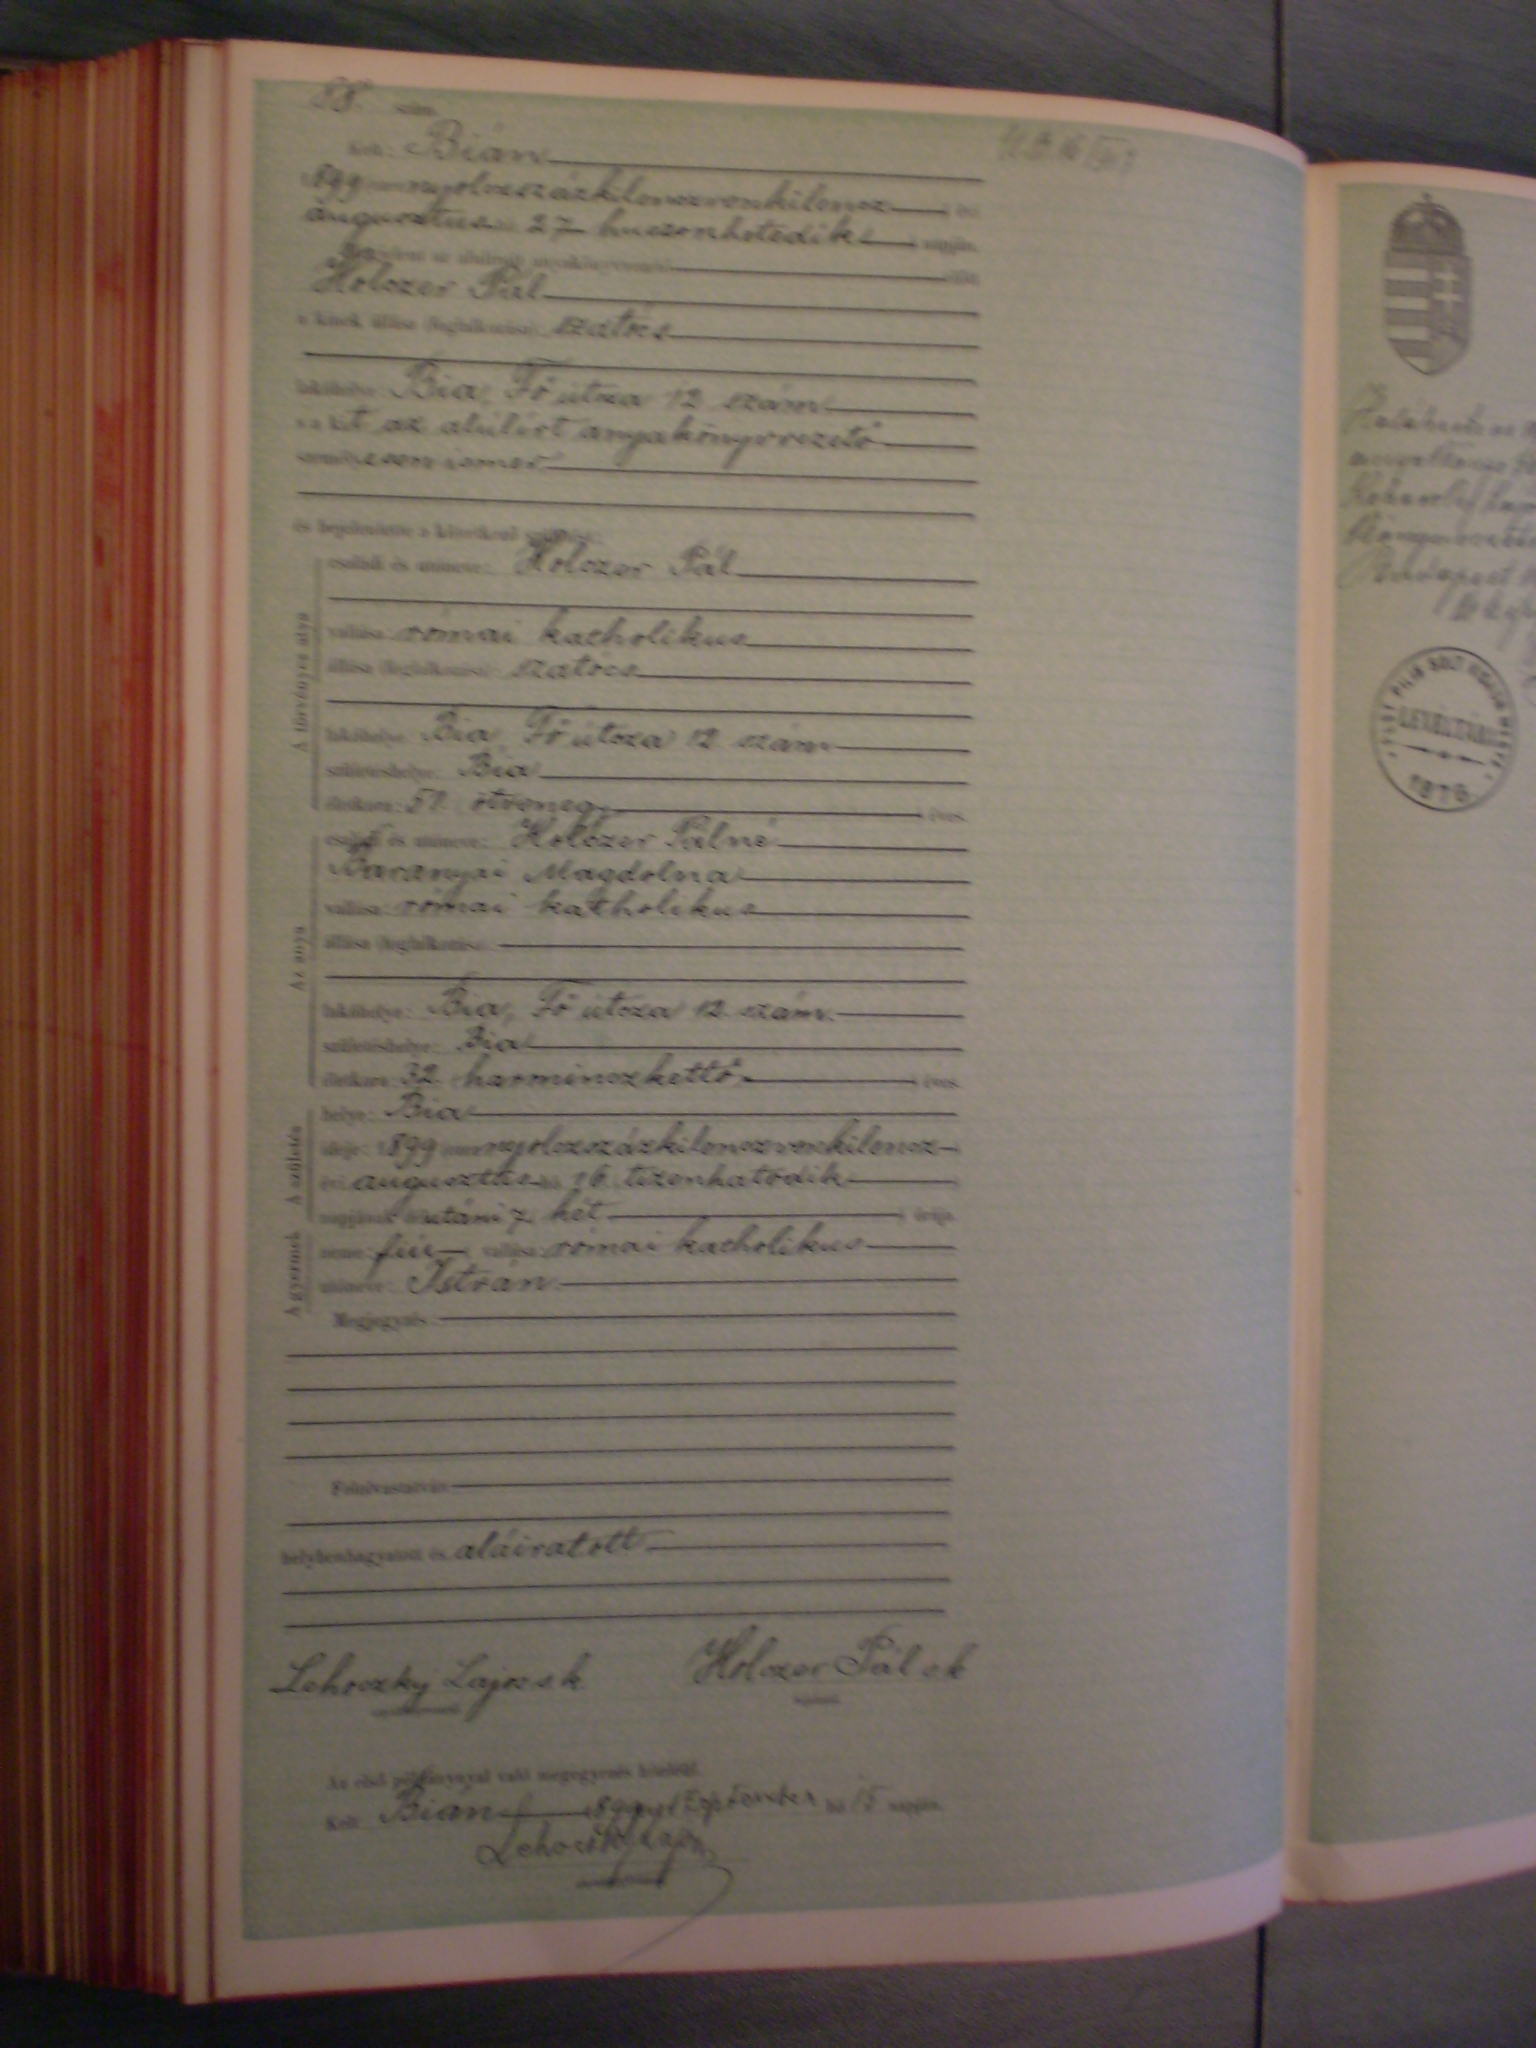 88. szám.
Kelt: Bián
1899 ezernyolczszázkilenczvenkilencz évi
augusztus hó 27 huszonhetedik napján.
Megjelent az alulírott anyakönyvvezető előtt
Holczer Pál
a kinek állása (foglalkozása): szatócs
lakóhelye: Bia, Fő útcza 12. szám
a kit az alúlírt anyakönyvvezető
személyesen ismer
és bejelentette a következő születést:
A törvényes atya
családi és utóneve: Holczer Pál
vallása: római katholikus
állása (foglalkozása): szatócs
lakóhelye: Bia, Fő útcza 12. szám
születéshelye: Bia
életkora: 51. ötvenegy éves.
Az anya
családi és utóneve: Holczer Pálné
Baranyai Magdolna
vallása: római katholikus
állása (foglalkozása):
lakóhelye: Bia, Fő útcza 12. szám.
születéshelye: Bia
életkora: 32. harminczkettő éves.
A születés
helye: Bia
ideje: 1899 ezernyolczszázkilenczvenkilencz
évi augusztus hó 16. tizenhatodik
napjának délutáni 7. hét órája.
A gyermek
neme: fiú vallása: római katholikus
utóneve: István
Megjegyzés:
Felolvastatván
helybenhagyatott és aláiratott
Lehoczky Lajos sk. Holczer Pál sk
anyakönyvvezető bejelentő.
Az első példánynyal való megegyezés hiteléül.
Kelt: Bián 1899 évi September hó 15 napján.
Lehoczky Lajos
PEST PILIS SOLT KISKUN MEGYE
LEVÉLTÁRA
1876